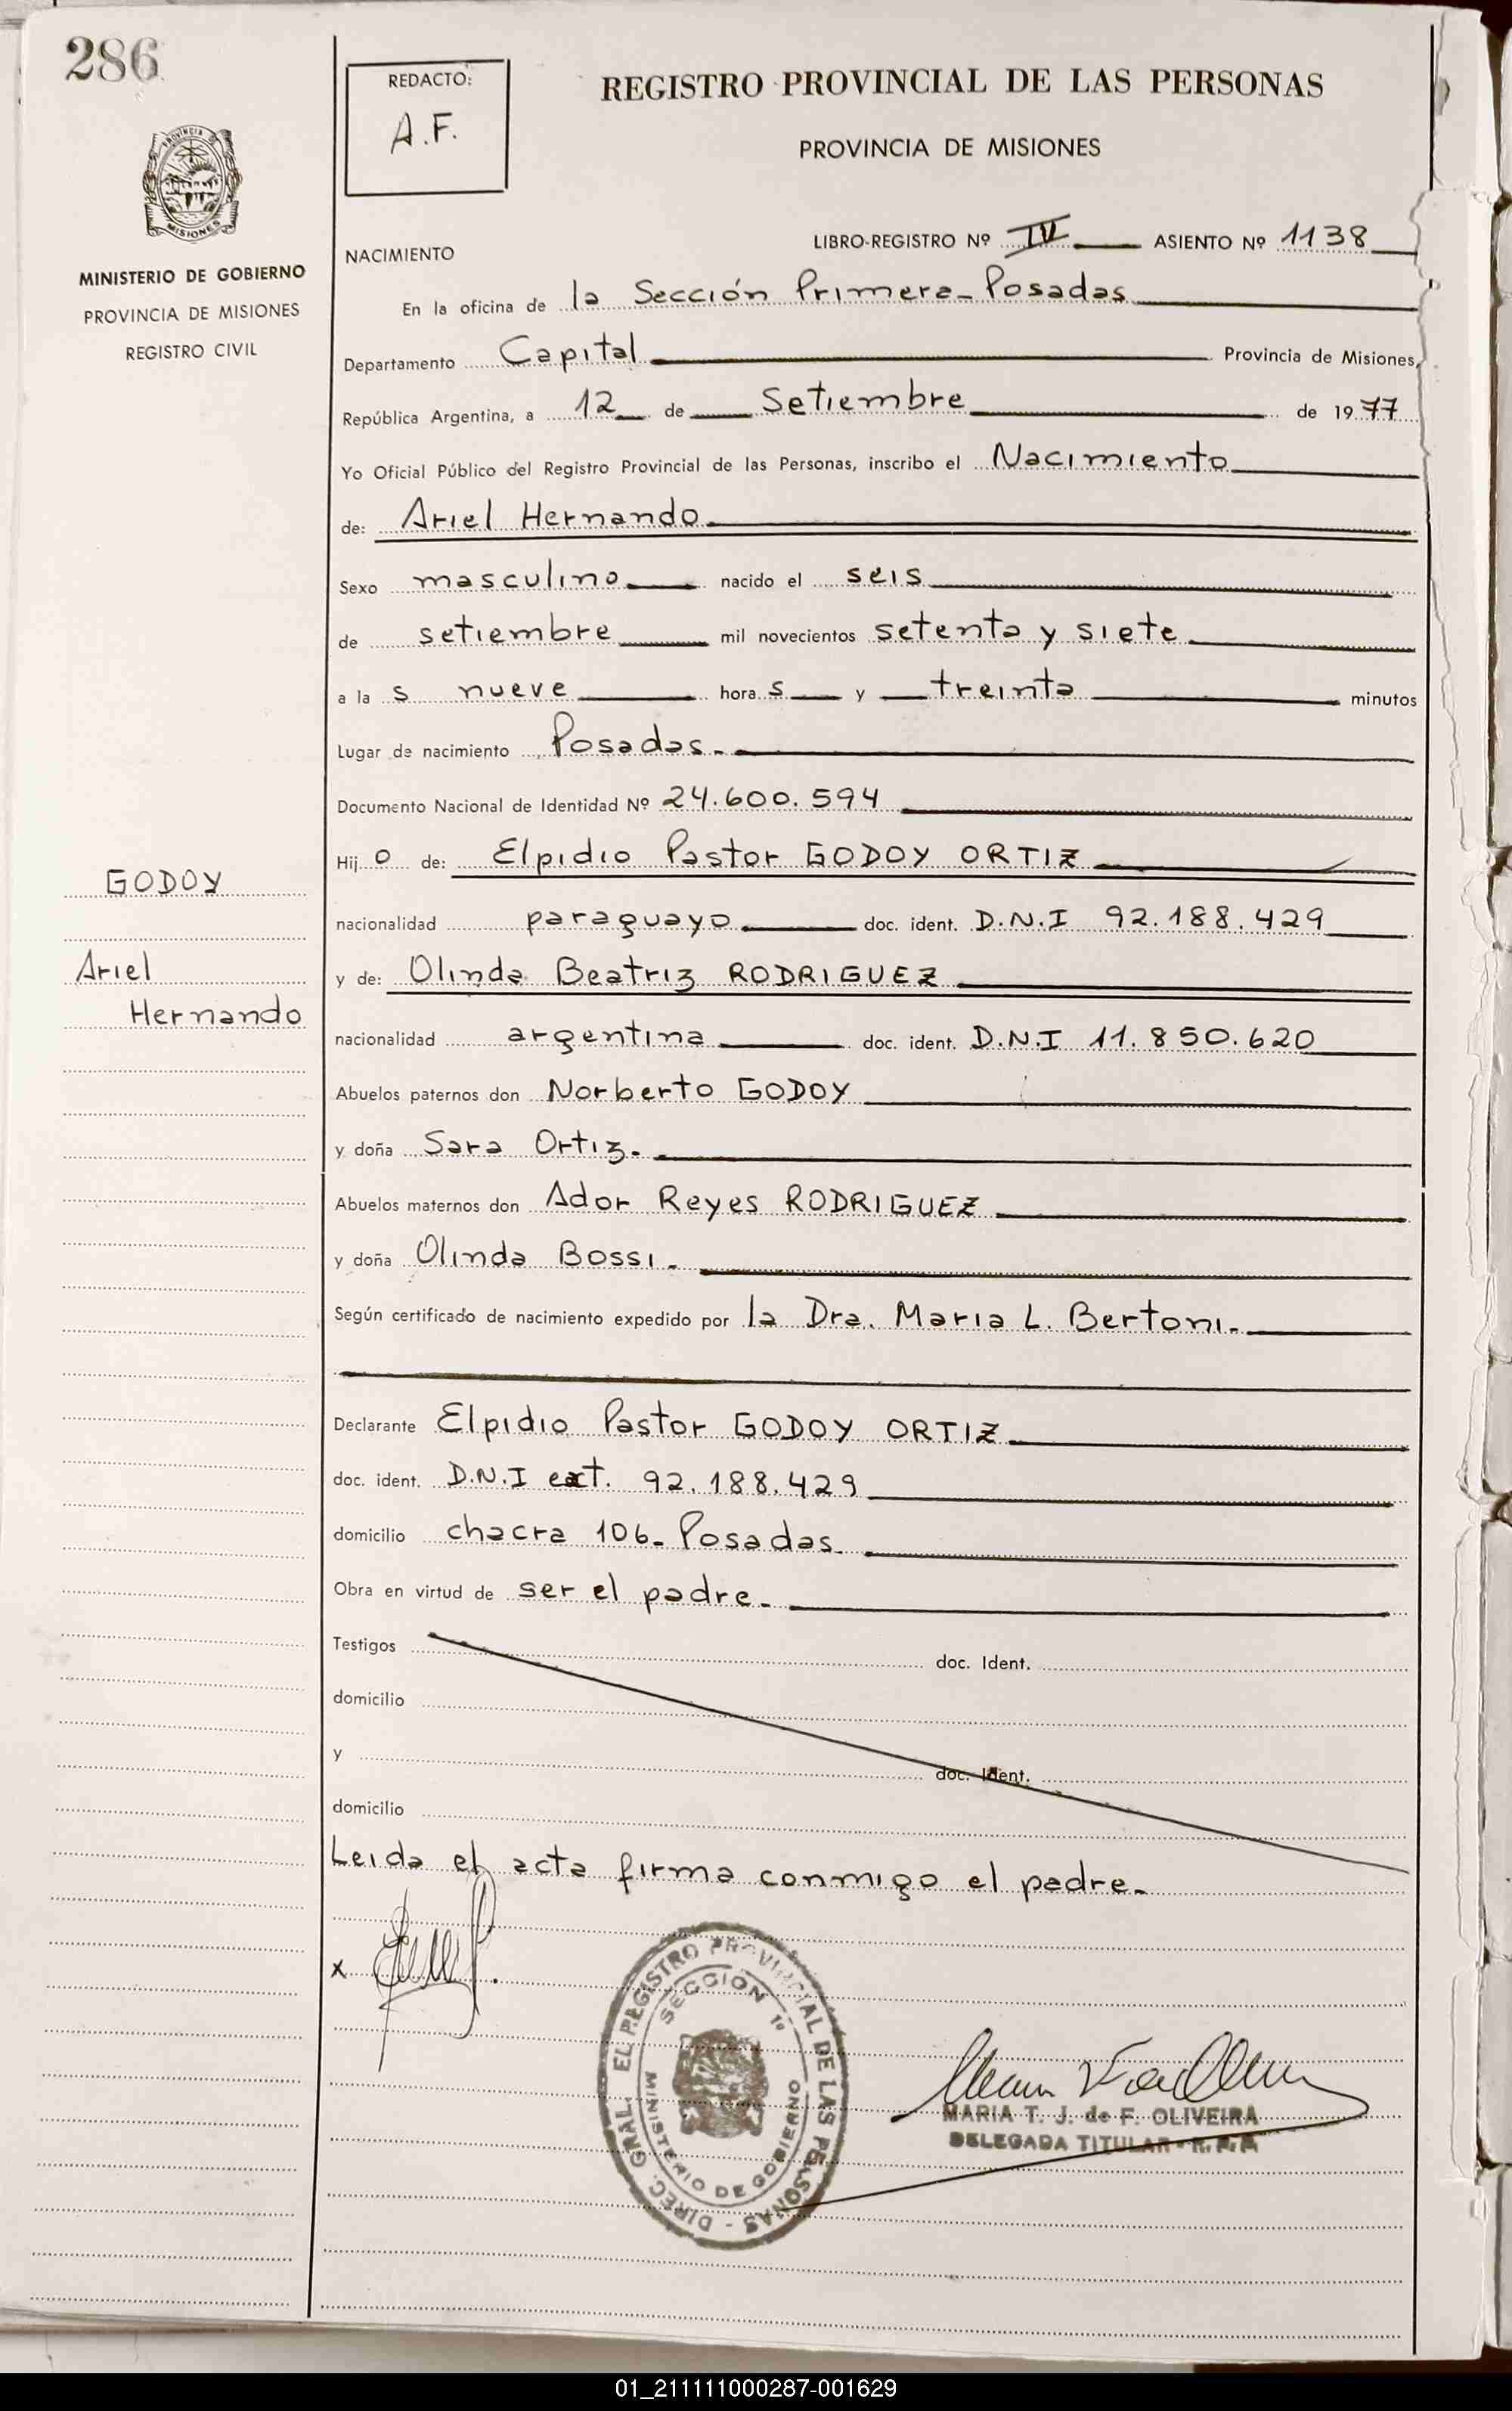 286
REDACTO:
A.F.
REGISTRO PROVINCIAL DE LAS PERSONAS
PROVINCIA DE MISIONES
PROVINCIA DE
MISIONES
MINISTERIO DE GOBIERNO
PROVINCIA DE MISIONES
REGISTRO CIVIL
LIBRO-REGISTRO Nº IV ASIENTO Nº 1138
NACIMIENTO
En la oficina de la Sección Primera - Posadas
Departamento Capital Provincia de Misiones,
República Argentina, a 12 de Setiembre de 1977
Yo Oficial Público del Registro Provincial de las Personas, inscribo el Nacimiento
de: Ariel Hernando
Sexo masculino nacido el seis
de setiembre mil novecientos setenta y siete
a la s nueve hora s y treinta minutos
Lugar de nacimiento Posadas.
Documento Nacional de Identidad Nº 24.600.594
Hij o de: Elpidio Pastor GODOY ORTIZ
GODOY
nacionalidad paraguayo doc. ident. D.N.I 92.188.429
Ariel
y de: Olinda Beatriz RODRIGUEZ
Hernando
nacionalidad argentina doc. ident. D.N.I 11.850.620
Abuelos paternos don Norberto GODOY
y doña Sara Ortiz.
Abuelos maternos don Ador Reyes RODRIGUEZ
y doña Olinda Bossi.
Según certificado de nacimiento expedido por la Dra. Maria L. Bertoni.
Declarante Elpidio Pastor GODOY ORTIZ
doc. ident. D.N.I ext. 92.188.429
domicilio chacra 106 - Posadas
Obra en virtud de ser el padre.
Testigos doc. Ident.
domicilio
y doc. Ident.
domicilio
Leida el acta firma conmigo el padre.
x
DIREC. GRAL. EL REGISTRO PROVINCIAL DE LAS PERSONAS -
SECCION 1º
MINISTERIO DE GOBIERNO
MARIA T. J. de F. OLIVEIRA
DELEGADA TITULAR - R.P.P.
01_211111000287-001629